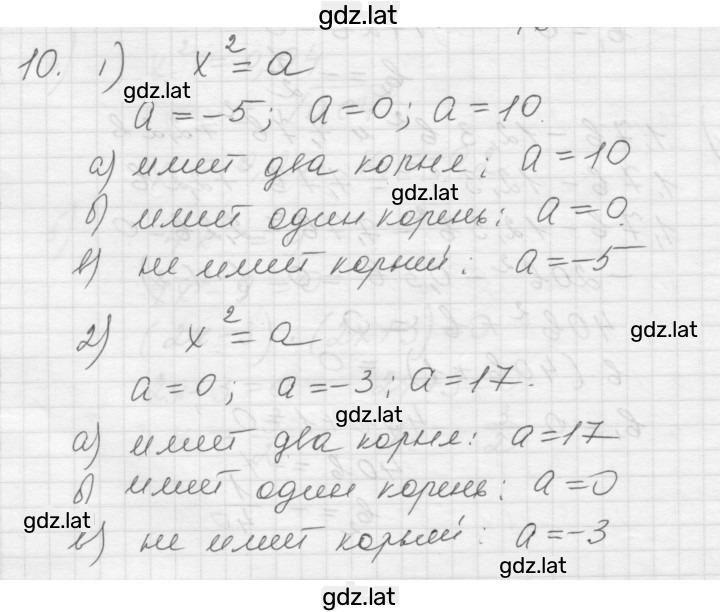 gdz.lat
10. 1) x² = a
gdz.lat
a = -5; a = 0; a = 10.
а) имеет два корня; a = 10
gdz.lat
б) имеет один корень: a = 0.
в) не имеет корней: a = -5
2) x² = a
gdz.lat
a = 0; a = -3; a = 17.
gdz.lat
а) имеет два корня: a = 17
б) имеет один корень: a = 0
gdz.lat
в) не имеет корней: a = -3
gdz.lat
gdz.lat